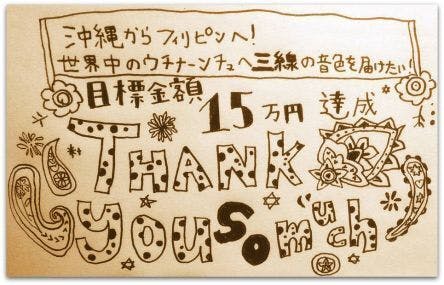 沖縄からフィリピンへ!
世界中のウチナーンチュへ三線の音色を届けたい!
目標金額 15万円 達成
THANK
YOU SO much